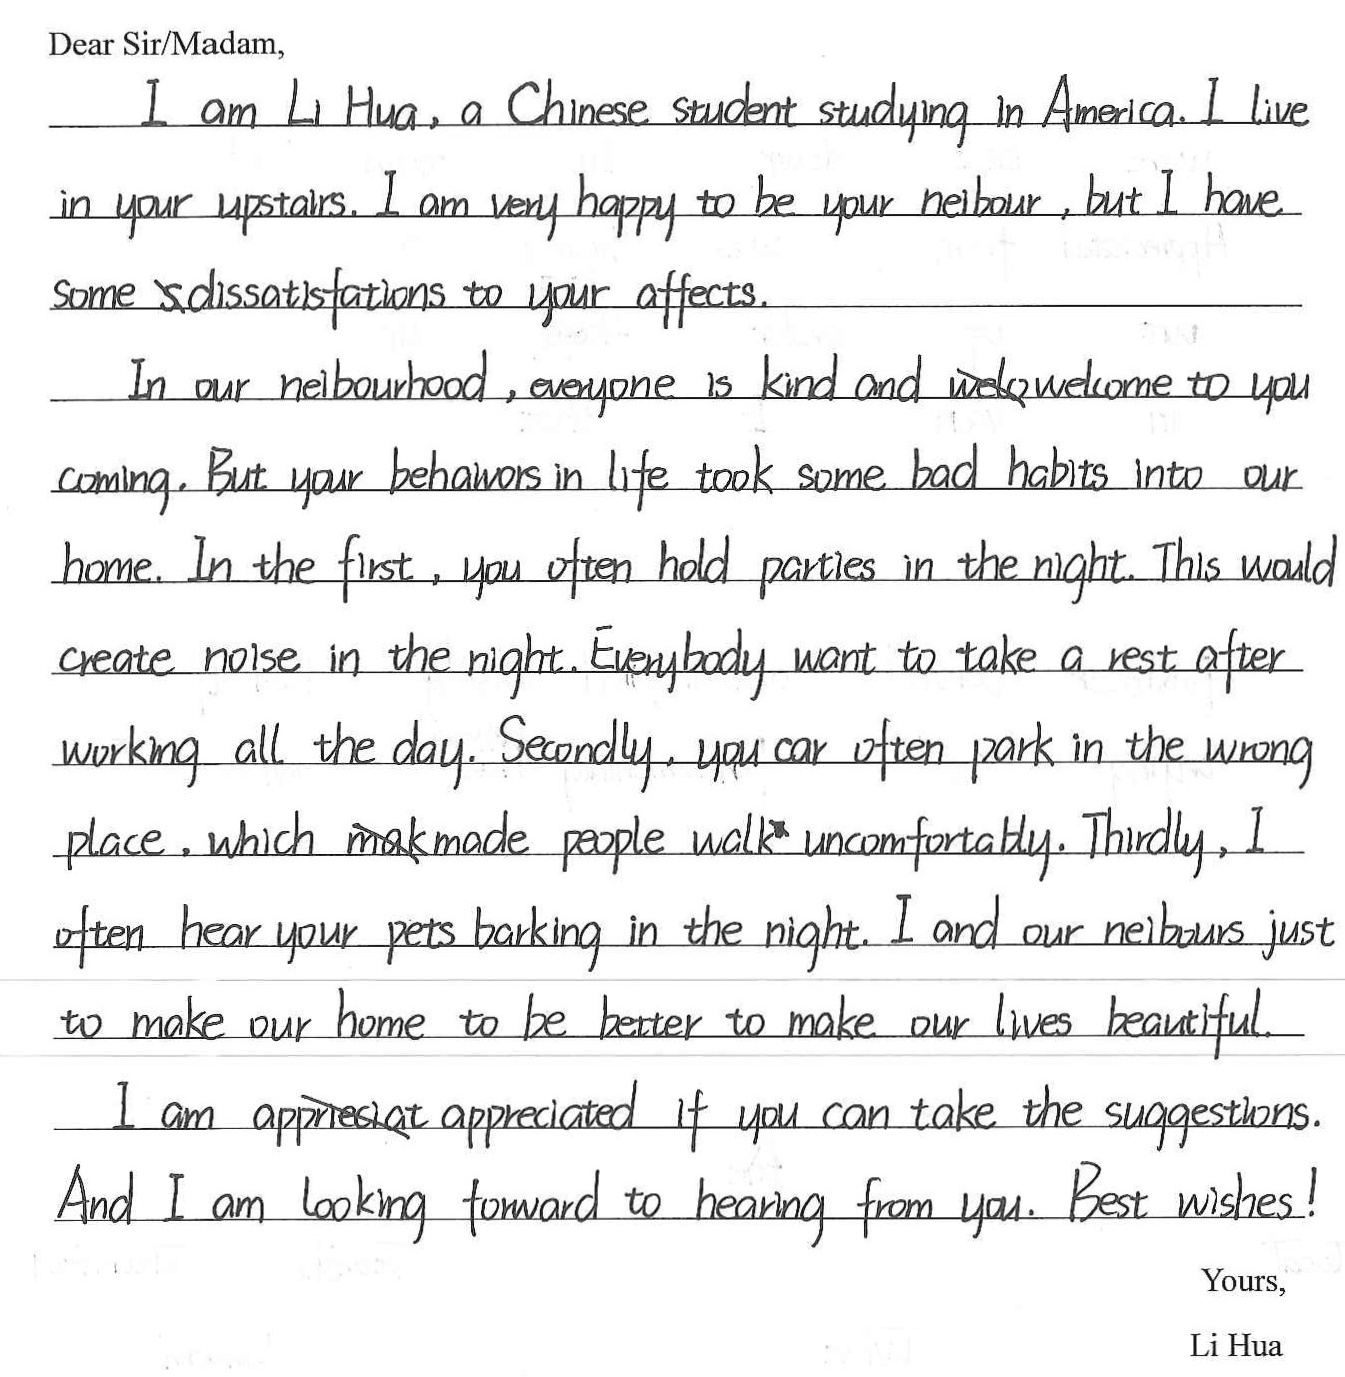 Dear Sir/Madam,
I am Li Hua, a Chinese student studying in America. I live
in your upstairs. I am very happy to be your neibour, but I have
some dissatisfations to your affects.
In our neibourhood, everyone is kind and welcome to you
coming. But your behaviors in life took some bad habits into our
home. In the first, you often hold parties in the night. This would
create noise in the night. Everybody want to take a rest after
working all the day. Secondly, you car often park in the wrong
place, which made people walk uncomfortably. Thirdly, I
often hear your pets barking in the night. I and our neibours just
to make our home to be better to make our lives beautiful.
I am appreciated if you can take the suggestions.
And I am looking forward to hearing from you. Best wishes!
Yours,
Li Hua